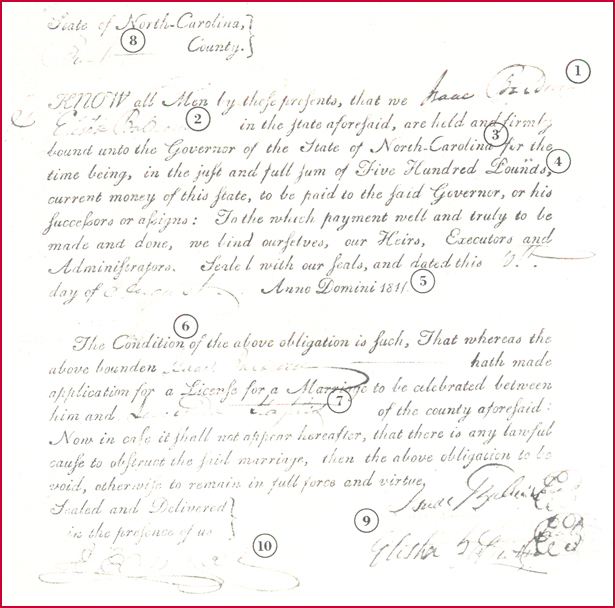 State of North-Carolina,}
8 County.}
1
KNOW all Men by these presents, that we Isaac
2 in the state aforesaid, are held and firmly
3
bound unto the Governor of the State of North-Carolina for the
4
time being, in the just and full sum of Five Hundred Pounds,
current money of this state, to be paid to the said Governor, or his
successors or assigns: To the which payment well and truly to be
made and done, we bind ourselves, our Heirs, Executors and
Administrators. Sealed with our seals, and dated this
day of August Anno Domini 181 5
6
The Condition of the above obligation is such, That whereas the
above bounden hath made
application for a License for a Marriage to be celebrated between
him and 7 of the county aforesaid:
Now in case it shall not appear hereafter, that there is any lawful
cause to obstruct the said marriage, then the above obligation to be
void, otherwise to remain in full force and virtue,
Sealed and Delivered}
in the presence of us}
Isaac
9
Elisha
10